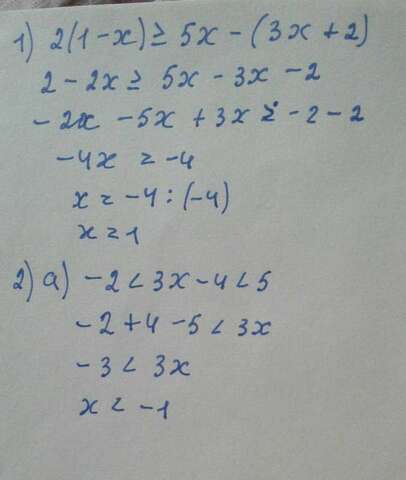 1) 2(1-x) ≥ 5x - (3x + 2)
2 - 2x ≥ 5x - 3x - 2
- 2x - 5x + 3x ≥ - 2 - 2
-4x = -4
x = -4 : (-4)
x = 1
2) a) -2 < 3x - 4 < 5
-2 + 4 - 5 < 3x
-3 < 3x
x < -1